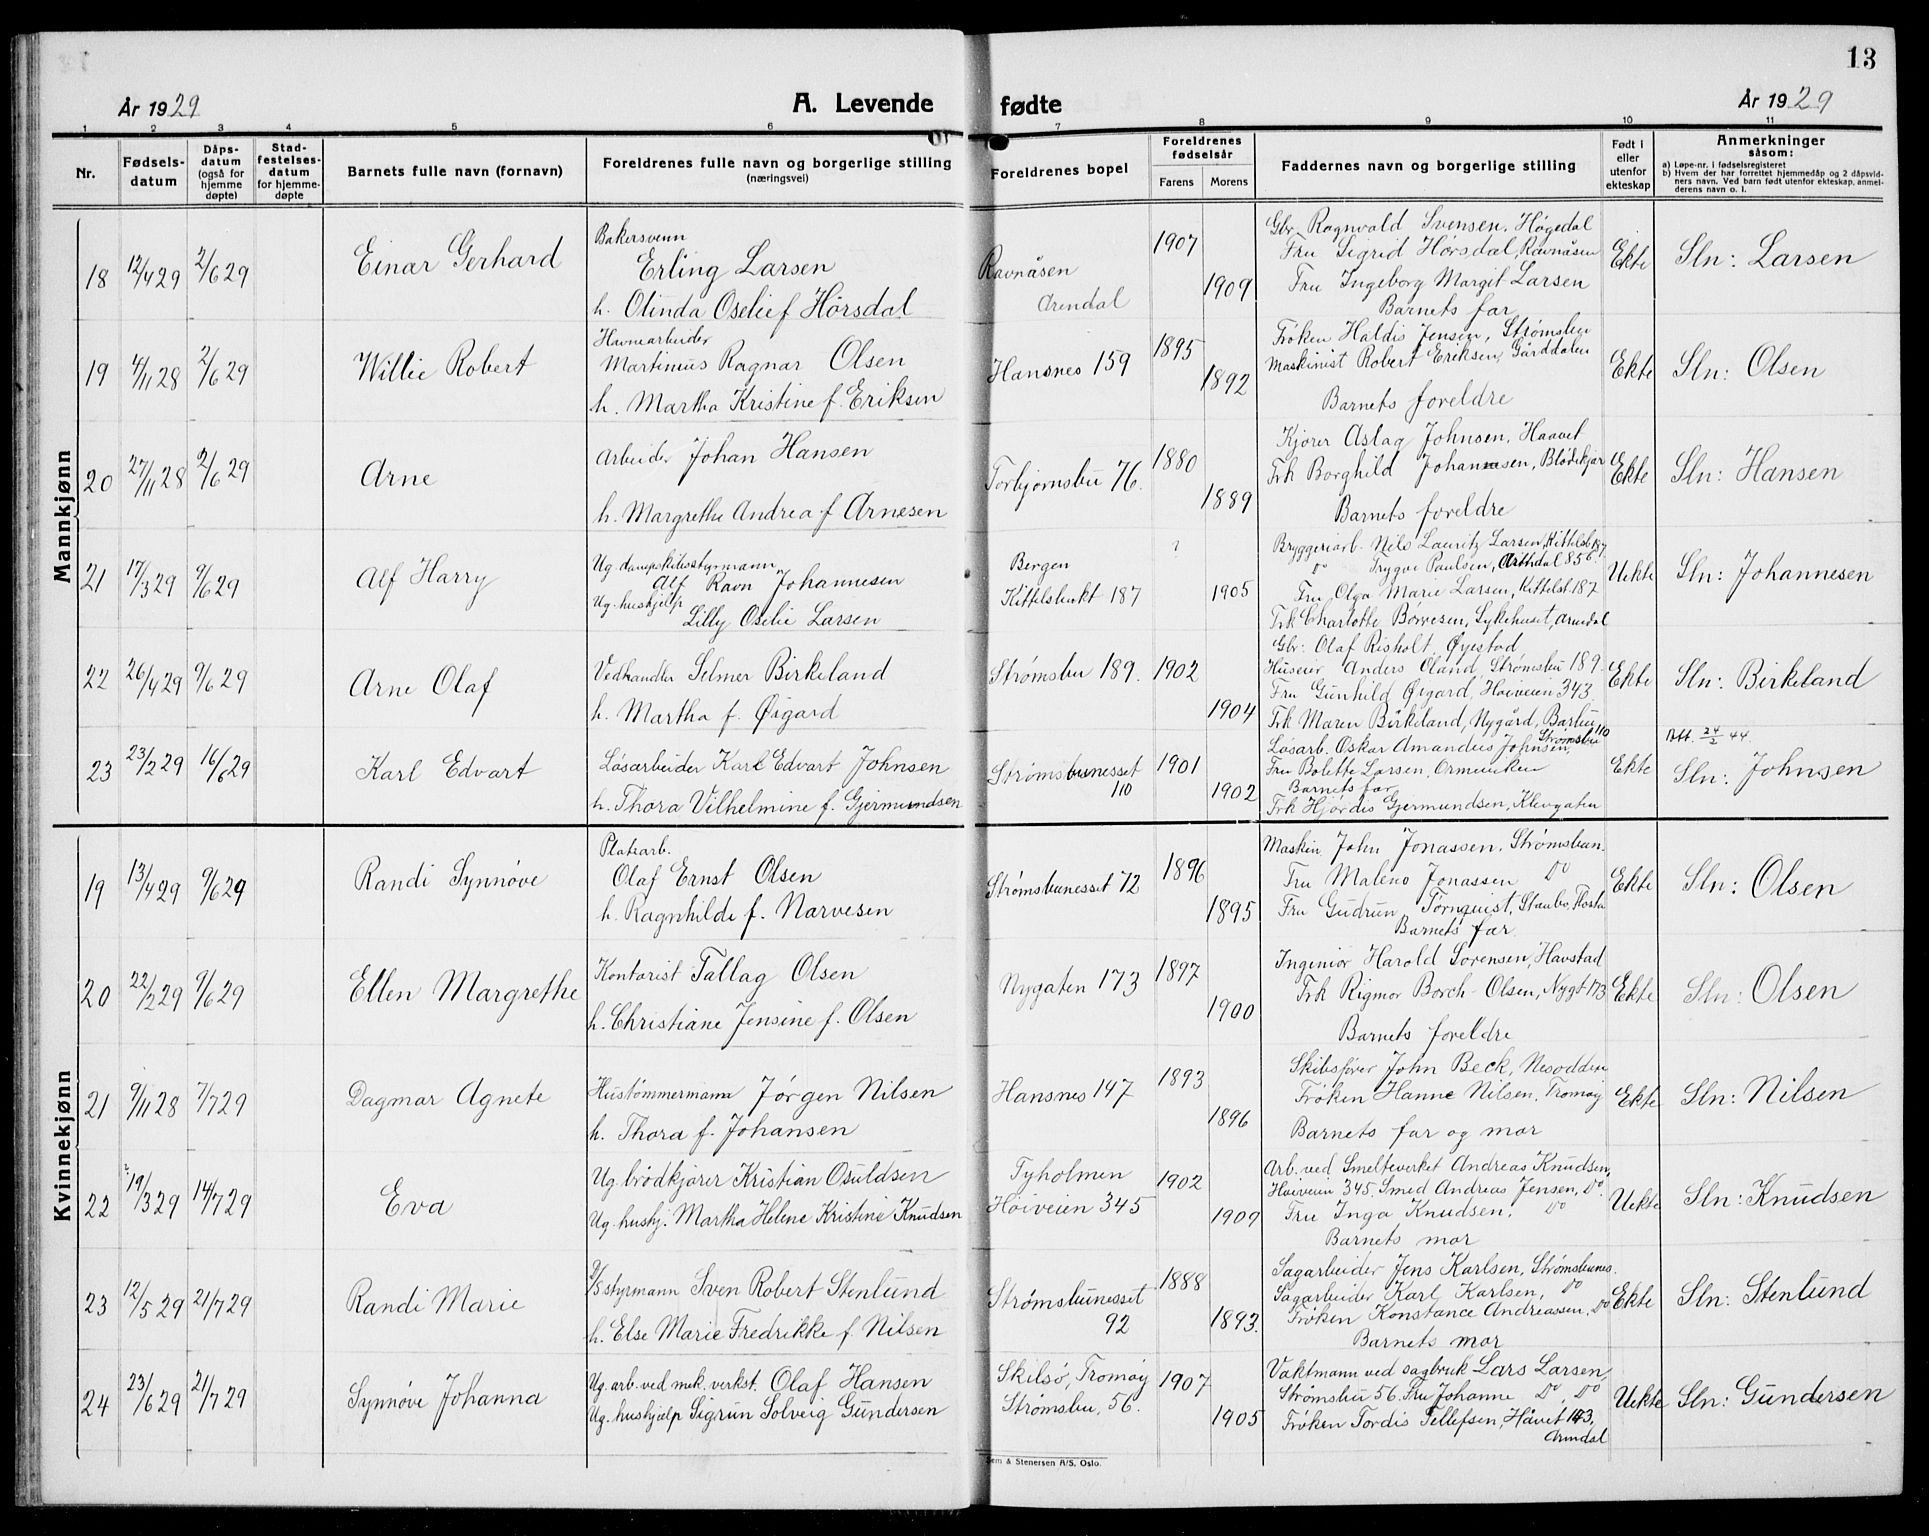 13
År 1929 A. Levende fødte År 1929
1 2 3 4 5 6 7 8 9 10 11
Nr. Fødsels-datum Dåps-datum (også for hjemme døpte) Stad-festelses-datum for hjemme-døpte Barnets fulle navn (fornavn) Foreldrenes fulle navn og borgerlige stilling (næringsvei) Foreldrenes bopel Foreldrenes fødselsår Farens Morens Faddernes navn og borgerlige stilling Født i eller utenfor ekteskap Anmerkninger såsom:
a) Løpe-nr. i fødselsregisteret
b) Hvem der har forrettet hjemmedåp og 2 dåpsvidners navn. Ved barn født utenfor ekteskap, anmelderens navn o. l.
Mannkjønn
18 12/4 29 2/6 29 Einar Gerhard
Bakersvenn
Erling Larsen
h. Olinda Oselie f Hørsdal
Ravnåsen
Arendal
1907
1909
Gbr. Ragnvald Svensen, Høgedal
Fru Sigrid Hørsdal, Ravnåsen
Fru Ingeborg Margit Larsen
Barnets far
Ekte Sln: Larsen
19 4/11 28 2/6 29 Willie Robert
Havnearbeider
Martinius Ragnar Olsen
h. Martha Kristine f. Eriksen
Hansnes 159
1895
1892
Frøken Haldis Jensen, Strømsbu
Maskinist Robert Eriksen, Gårddalen
Barnets foreldre
Ekte Sln: Olsen
20 27/11 28 2/6 29 Arne
Arbeider Johan Hansen
h. Margrethe Andrea f Arnesen
Torbjørnsbu 76.
1880
1889
Kjører Aslag Johnsen, Haavet
Frk Borghild Johannsen, Blødekjær
Barnets foreldre
Ekte Sln: Hansen
21 17/3 29 9/6 29 Alf Harry
Ug. dampskibsstyrmann
Alf Ravn Johannesen
Ug. hushjelp
Lilly Oselie Larsen
Bergen
Kittelsbukt 187
?
1905
Bryggeriarb. Nils Lauritz Larsen, Kittelsb 187
Do Trygve Paulsen, Arthdal 856.
Fru Olga Marie Larsen, Kittelsb. 187
Frk Charlotte Børresen, Sykehuset, Arendal
Uekte Sln: Johannesen
22 26/4 29 9/6 29 Arne Olaf
Vedhandler Selmer Birkeland
h. Martha f. Øigard
Strømsbu 189.
1902
1904
Gbr: Olaf Risholt, Øyestad
Huseier Anders Øland, Strømsbu 189.
Fru Gunhild Øigard, Høiveien 343
Frk Maren Birkeland, Nygård, Barbu
Ekte Sln: Birkeland
23 23/2 29 16/6 29 Karl Edvart
Løsarbeider Karl Edvart Johnsen
h. Thora Vilhelmine f. Gjermundsen
Strømsbunesset
110
1901
1902
Løsarb. Oskar Amandus Johnsen, Strømsbu 110
Fru Bolette Larsen, Ormeviken
Barnets far
Frk Hjørdis Gjermundsen, Klevgaten
Ekte
Att. 24/2 44.
Sln: Johnsen
Kvinnekjønn
19 13/4 29 9/6 29 Randi Synnøve
Platearb.
Olaf Ernst Olsen
h. Ragnhilde f. Narvesen
Strømsbunesset 72
1896
1895
Maskin. John Jonassen, Strømsbun.
Fru Maleno Jonassen Do
Fru Gudrun Tørnquist, Staubo, Flosta
Barnets far
Ekte Sln: Olsen
20 22/2 29 9/6 29 Ellen Margrethe
Kontorist Tallag Olsen
h. Christiane Jensine f. Olsen
Nygaten 173
1897
1900
Ingeniør Harold Sørensen, Havstad
Frk Rigmor Borch-Olsen, Nygt 173
Barnets foreldre
Ekte Sln: Olsen
21 9/11 28 7/7 29 Dagmar Agnete
Hustømmermann Jørgen Nilsen
h. Thora f. Johansen
Hansnes 147
1893
1896
Skibsfører John Beck, Nesodden
Frøken Hanne Nilsen, Tromøy
Barnets far og mor
Ekte Sln: Nilsen
22 19/3 29 14/7 29 Eva
Ug. brødkjører Kristian Osuldsen
Ug. hushj. Martha Helene Kristine Knudsen
Tyholmen
Høiveien 345
1902
1909
Arb. ved Smelteverket Andreas Knudsen,
Høiveien 345. Smed Andreas Jensen, Do.
Fru Inga Knudsen, Do
Barnets mor
Uekte Sln: Knudsen
23 12/5 29 21/7 29 Randi Marie
D/S styrmann Sven Robert Stenlund
h. Else Marie Fredrikke f. Nilsen
Strømsbunesset
92
1888
1893.
Sagarbeider Jens Karlsen, Strømsbunes.
Sagarbeider Karl Karlsen, Do
Frøken Konstance Andreassen, Do
Barnets mor
Ekte Sln: Stenlund
24 23/6 29 21/7 29 Synnøve Johanna
Ug. arb. ved mek. verkst. Olaf Hansen
Ug. hushjelp Sigrun Solveig Gundersen
Skilsø, Tromøy
Strømsbu, 56.
1907
1905
Vaktmann ved sagbruk Lars Larsen,
Strømsbu 56. Fru Johanne Do, Do
Frøken Tordis Tellefsen, Håvet 143,
Arendal
Uekte Sln: Gundersen
Sem & Stenersen A/S, Oslo.